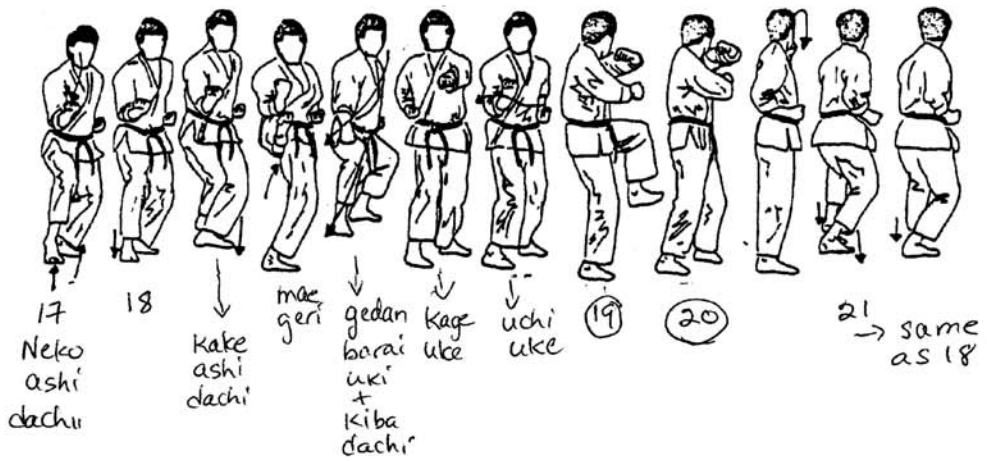 17
Neko
ashi
dachii
18
Kake
ashi
dachi
mae
geri
gedan
barai
uki
+
Kiba
dachi
Kage
uke
uchi
uke
19
20
21
→ same
as 18